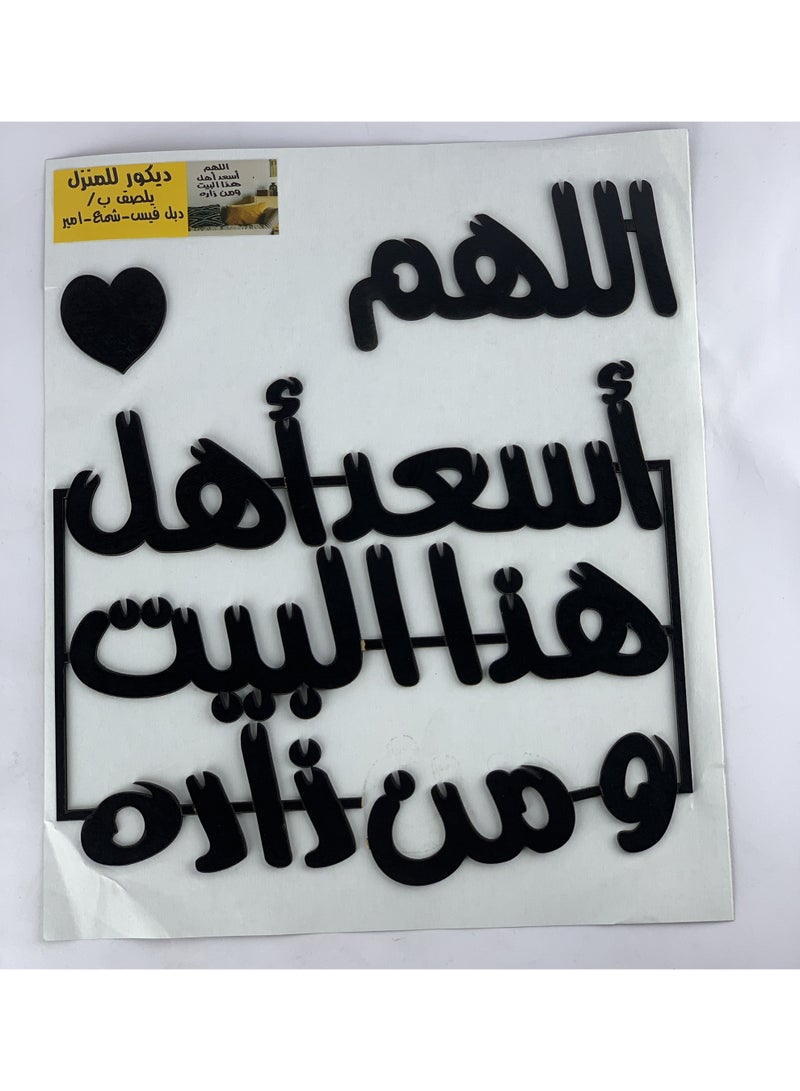 ديكور للمنزل
يلصق ب/
دبل فيس-شمع-امير
اللهم
أسعد أهل
هذا البيت
ومن زاره
اللهم
أسعد أهل
هذا البيت
ومن زاره